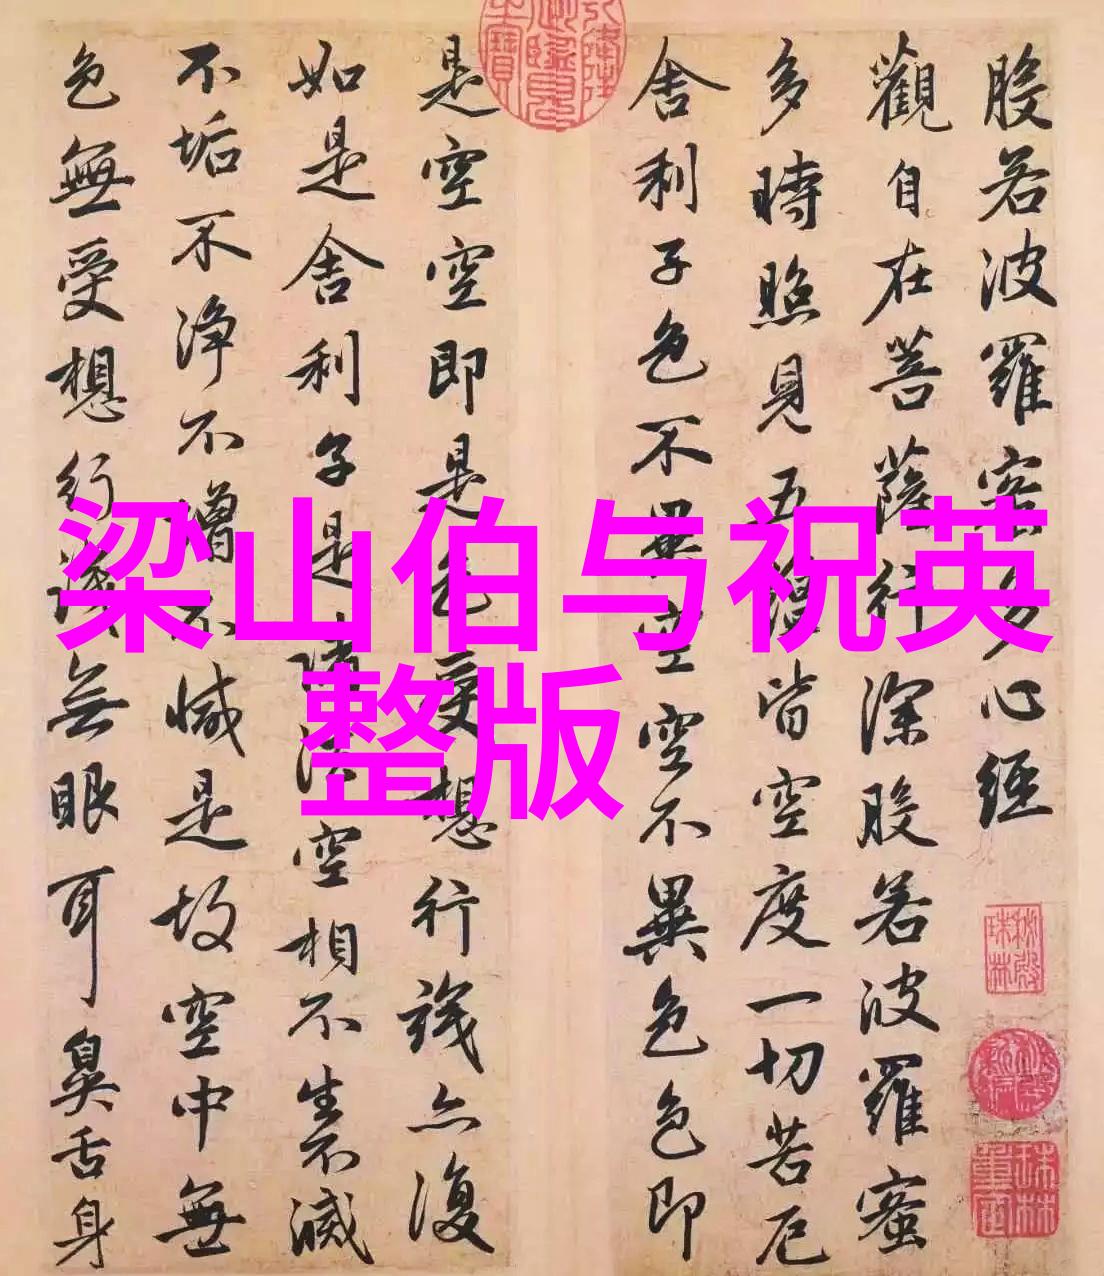 般若波羅蜜多心經
觀自在菩薩行深般若波羅蜜
多時照見五蘊皆空度一切苦厄
舍利子色不異空空不異色色即
是空空即是色受想行識亦復
如是舍利子是諸法空相不生不滅
不垢不淨不增不減是故空中無
色無受想行識無眼耳鼻舌身
梁山伯与祝英
整版